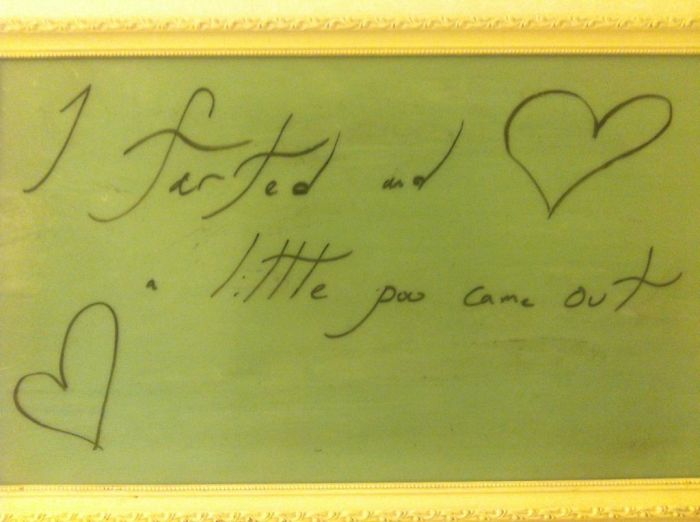 I farted and
a little poo came out